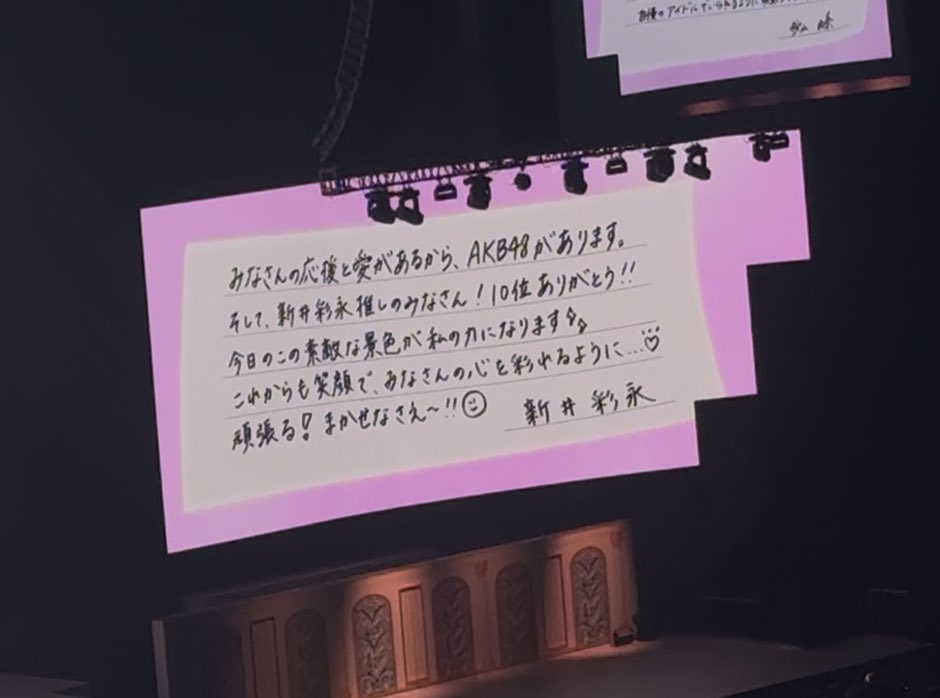 お後のアイドルでいられるように
みなさんの応援と愛があるから、AKB48があります。
そして、新井彩永推しのみなさん！10位ありがとう!!
今日のこの素敵な景色が私の力になります
これからも笑顔で、みなさんの心を彩れるように…♡
頑張る！まかせなさえ〜!!☺
新井彩永